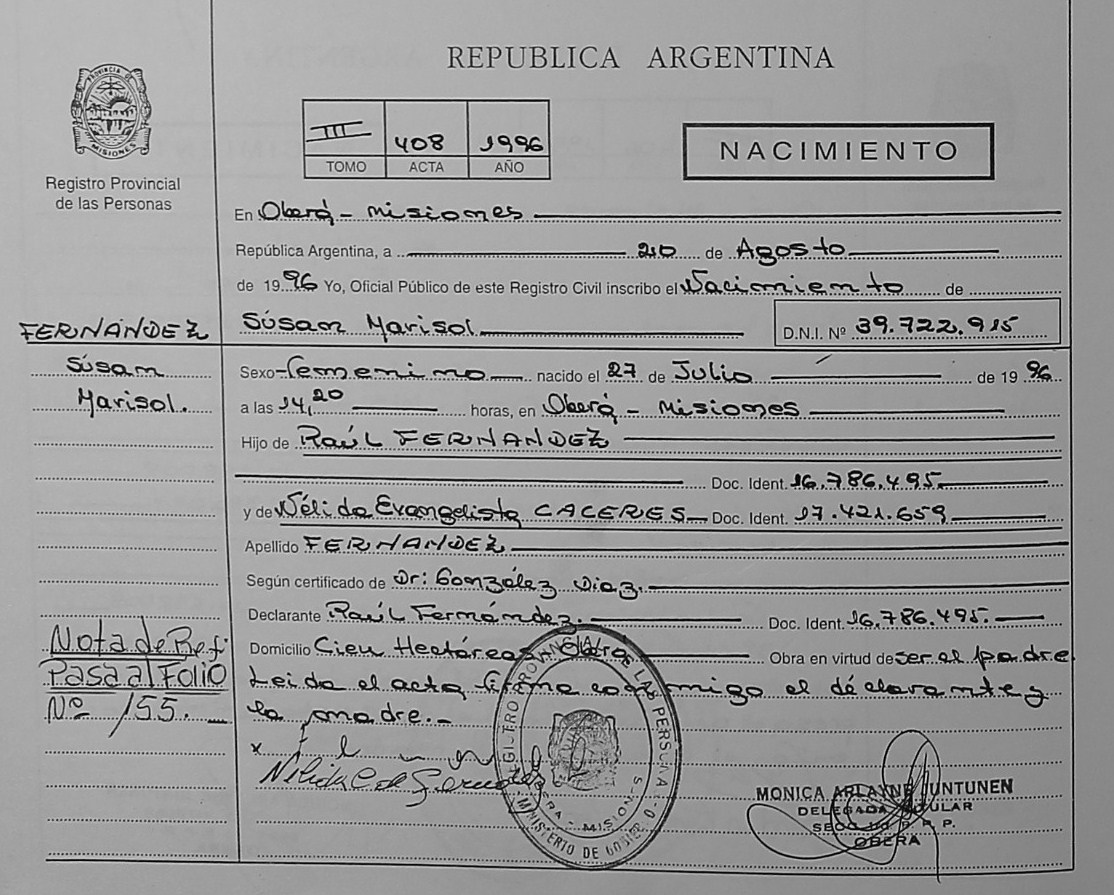 REPUBLICA ARGENTINA
PROVINCIA DE MISIONES
Registro Provincial
de las Personas
III 408 1996
TOMO ACTA AÑO
NACIMIENTO
En Oberá - Misiones
República Argentina, a 20 de Agosto
de 1996 Yo, Oficial Público de este Registro Civil inscribo el Nacimiento de
Súsan Marisol D.N.I. Nº 39.722.915
FERNÁNDEZ
Súsan
Marisol.
Sexo Femenino nacido el 27 de Julio de 1996
a las 14,20 horas, en Oberá - Misiones
Hijo de Raúl FERNANDEZ
Doc. Ident. 16.786.495.
y de Nélida Evangelista CACERES Doc. Ident. 17.421.659
Apellido FERNANDEZ
Según certificado de Dr: González Diaz.
Declarante Raúl Fernández. Doc. Ident. 16.786.495.
Domicilio Cien Hectáreas Oberá Obra en virtud de ser el padre
Leida el acta firma conmigo el déclarante y
la madre.-
Nota de Ref.
Pasa al Folio
Nº 155.
x
Nelida C de
REGISTRO PROVINCIAL DE LAS PERSONAS
OBERA - MISIONES
MINISTERIO DE GOBIERNO
MONICA ARLAYNE UNTUNEN
DELEGADA TITULAR
R. P. P.
OBERA